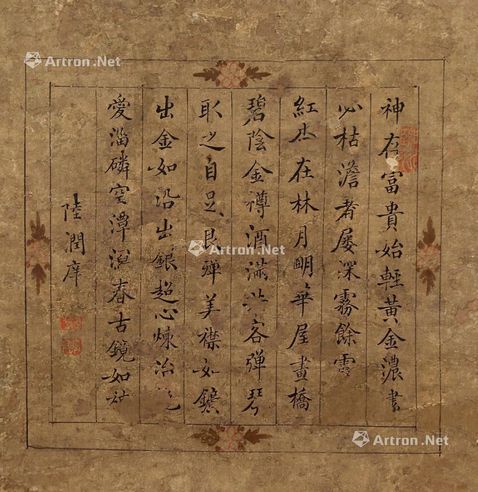 Artron.Net
神存富貴始輕黃金濃盡
必枯澹者屢深霧餘雲
紅杏在林月明華屋畫橋
碧陰金罇酒滿共客彈琴
取之自足良殫美襟如鑛
出金如沿出銀超心煉冶
愛淄磷空潭瀉春古鏡如
陸潤庠
Artron.Net
Artron.Net